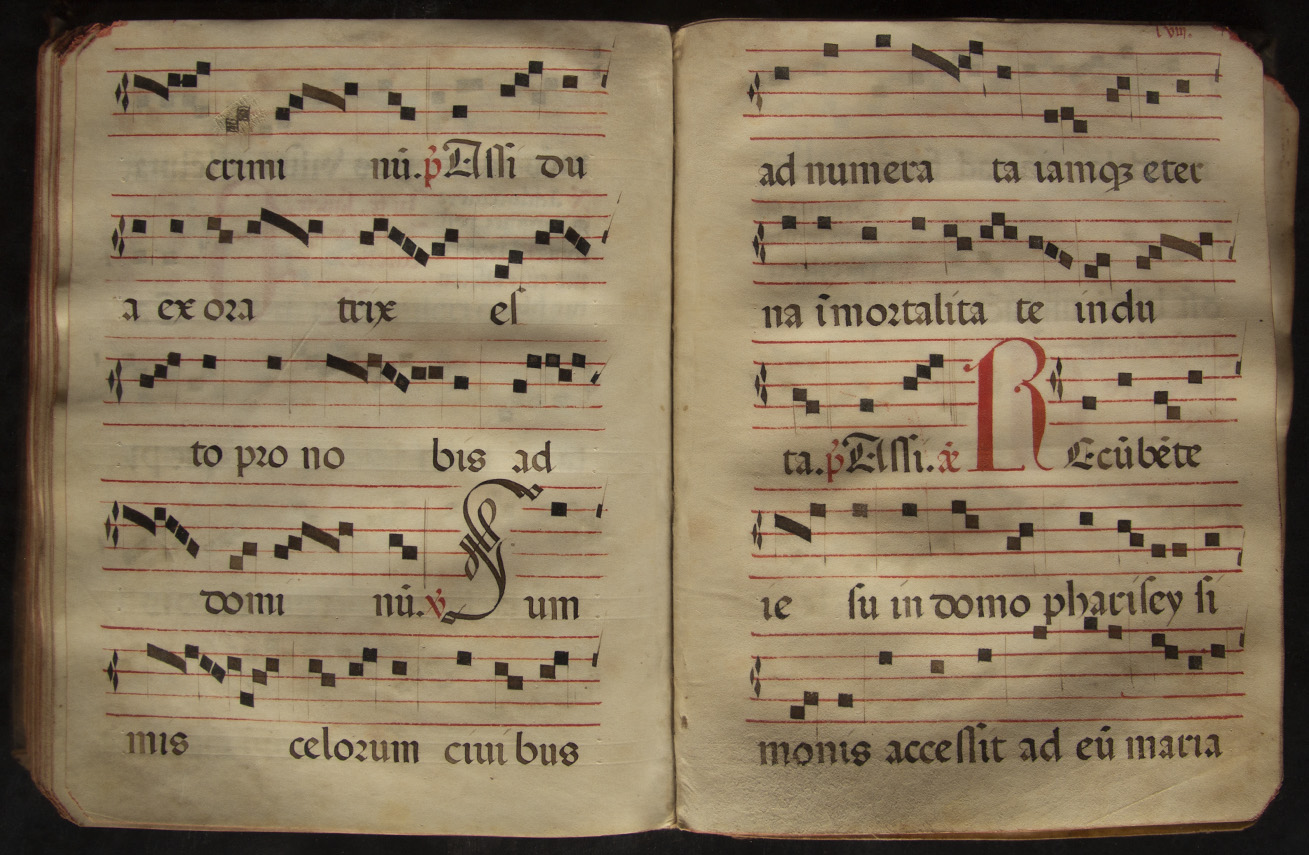 crimi nū. p̄ Assi du
a ex ora trix es
to pro no bis ad
domi nū. v̄ Sum
mis celorum ciui bus
lviij.
ad numera ta iamqꝫ eter
na īmortalita te indu
ta. p̄ Assi. æ REcūbēte
ie su in domo phariſey ſi
monis acceſſit ad eū maria